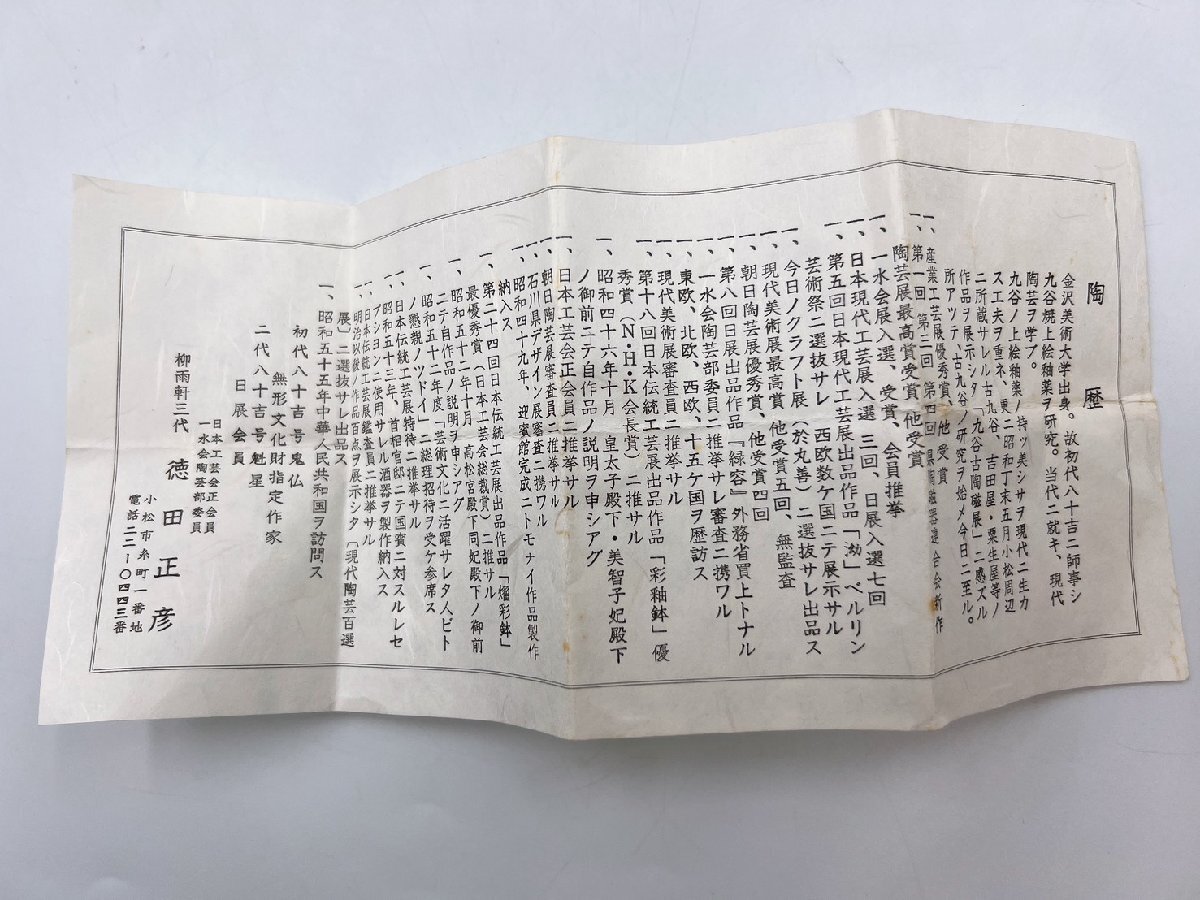 陶歴
金沢美術大学出身。故初代八十吉ニ師事シ
九谷焼上絵釉薬ヲ研究。当代ニ就キ、現代
陶芸ヲ学ブ。
九谷ノ上絵釉薬ノ持ツ美シサヲ現代ニ生カ
ス工夫ヲ重ネ、更ニ昭和丁末五月小松周辺
ニ所蔵サレル古九谷、吉田屋・粟生屋等ノ
作品ヲ展示シタ「九谷古陶磁展」ニ感ズル
所アツテ、古九谷ノ研究ヲ始メ今日ニ至ル。
一、産業工芸展優秀賞、他受賞
一、第一回 第三回 第四回 県陶磁器連合会新作
陶芸展最高賞受賞 他受賞
一、一水会展入選、受賞、会員推挙
一、日本現代工芸展入選 三回、日展入選七回
一、第五回日本現代工芸展出品作品「渤」ベルリン
芸術祭ニ選抜サレ、西欧数ケ国ニテ展示サル
一、今日ノクラフト展(於丸善)ニ選抜サレ出品ス
一、現代美術展最高賞、他受賞五回、無監査
一、朝日陶芸展優秀賞、他受賞四回
一、第八回日展出品作品「緑容」外務省買上トナル
一、一水会陶芸部委員ニ推挙サレ審査ニ携ワル
一、東欧、北欧、西欧、十五ケ国ヲ歴訪ス
一、現代美術展審査員ニ推挙サル
一、第十八回日本伝統工芸展出品作品「彩釉鉢」優
秀賞(N・H・K会長賞)ニ推サル
一、昭和四十六年十月 皇太子殿下・美智子妃殿下
ノ御前ニテ自作品ノ説明ヲ申シアグ
一、日本工芸会正会員ニ推挙サル
一、朝日陶芸展審査員ニ推挙サル
一、石川県デザイン展審査ニ携ワル
一、昭和四十九年、迎賓館完成ニトモナイ作品製作
納入ス
一、第二十四回日本伝統工芸展出品作品「燿彩鉢」
最優秀賞(日本工芸会総裁賞)ニ推サル
一、昭和五十二年十月 高松宮殿下同妃殿下ノ御前
ニテ自作品ノ説明ヲ申シアグ
一、昭和五十二年度「芸術文化ニ活躍サレタ人ビト
ノ懇親ノツドイ」ニ総理招待ヲ受ケ参席ス
一、日本伝統工芸展特待ニ推挙サル
一、昭和五十三年、首相官邸ニテ国賓ニ対スルレセ
プションニ使用サレル酒器ヲ製作納入ス
一、日本伝統工芸展鑑査員ニ推挙サル
一、明治以後ノ作品百点ヲ展示シタ「現代陶芸百選
展」ニ選抜サレ出品ス
一、昭和五十五年中華人民共和国ヲ訪問ス
初代八十吉号鬼仏
無形文化財指定作家
二代八十吉号魁星
日展会員
日本工芸会正会員
一水会陶芸部委員
柳雨軒三代 徳田正彦
小松市糸町一番地
電話二二-〇四四三番